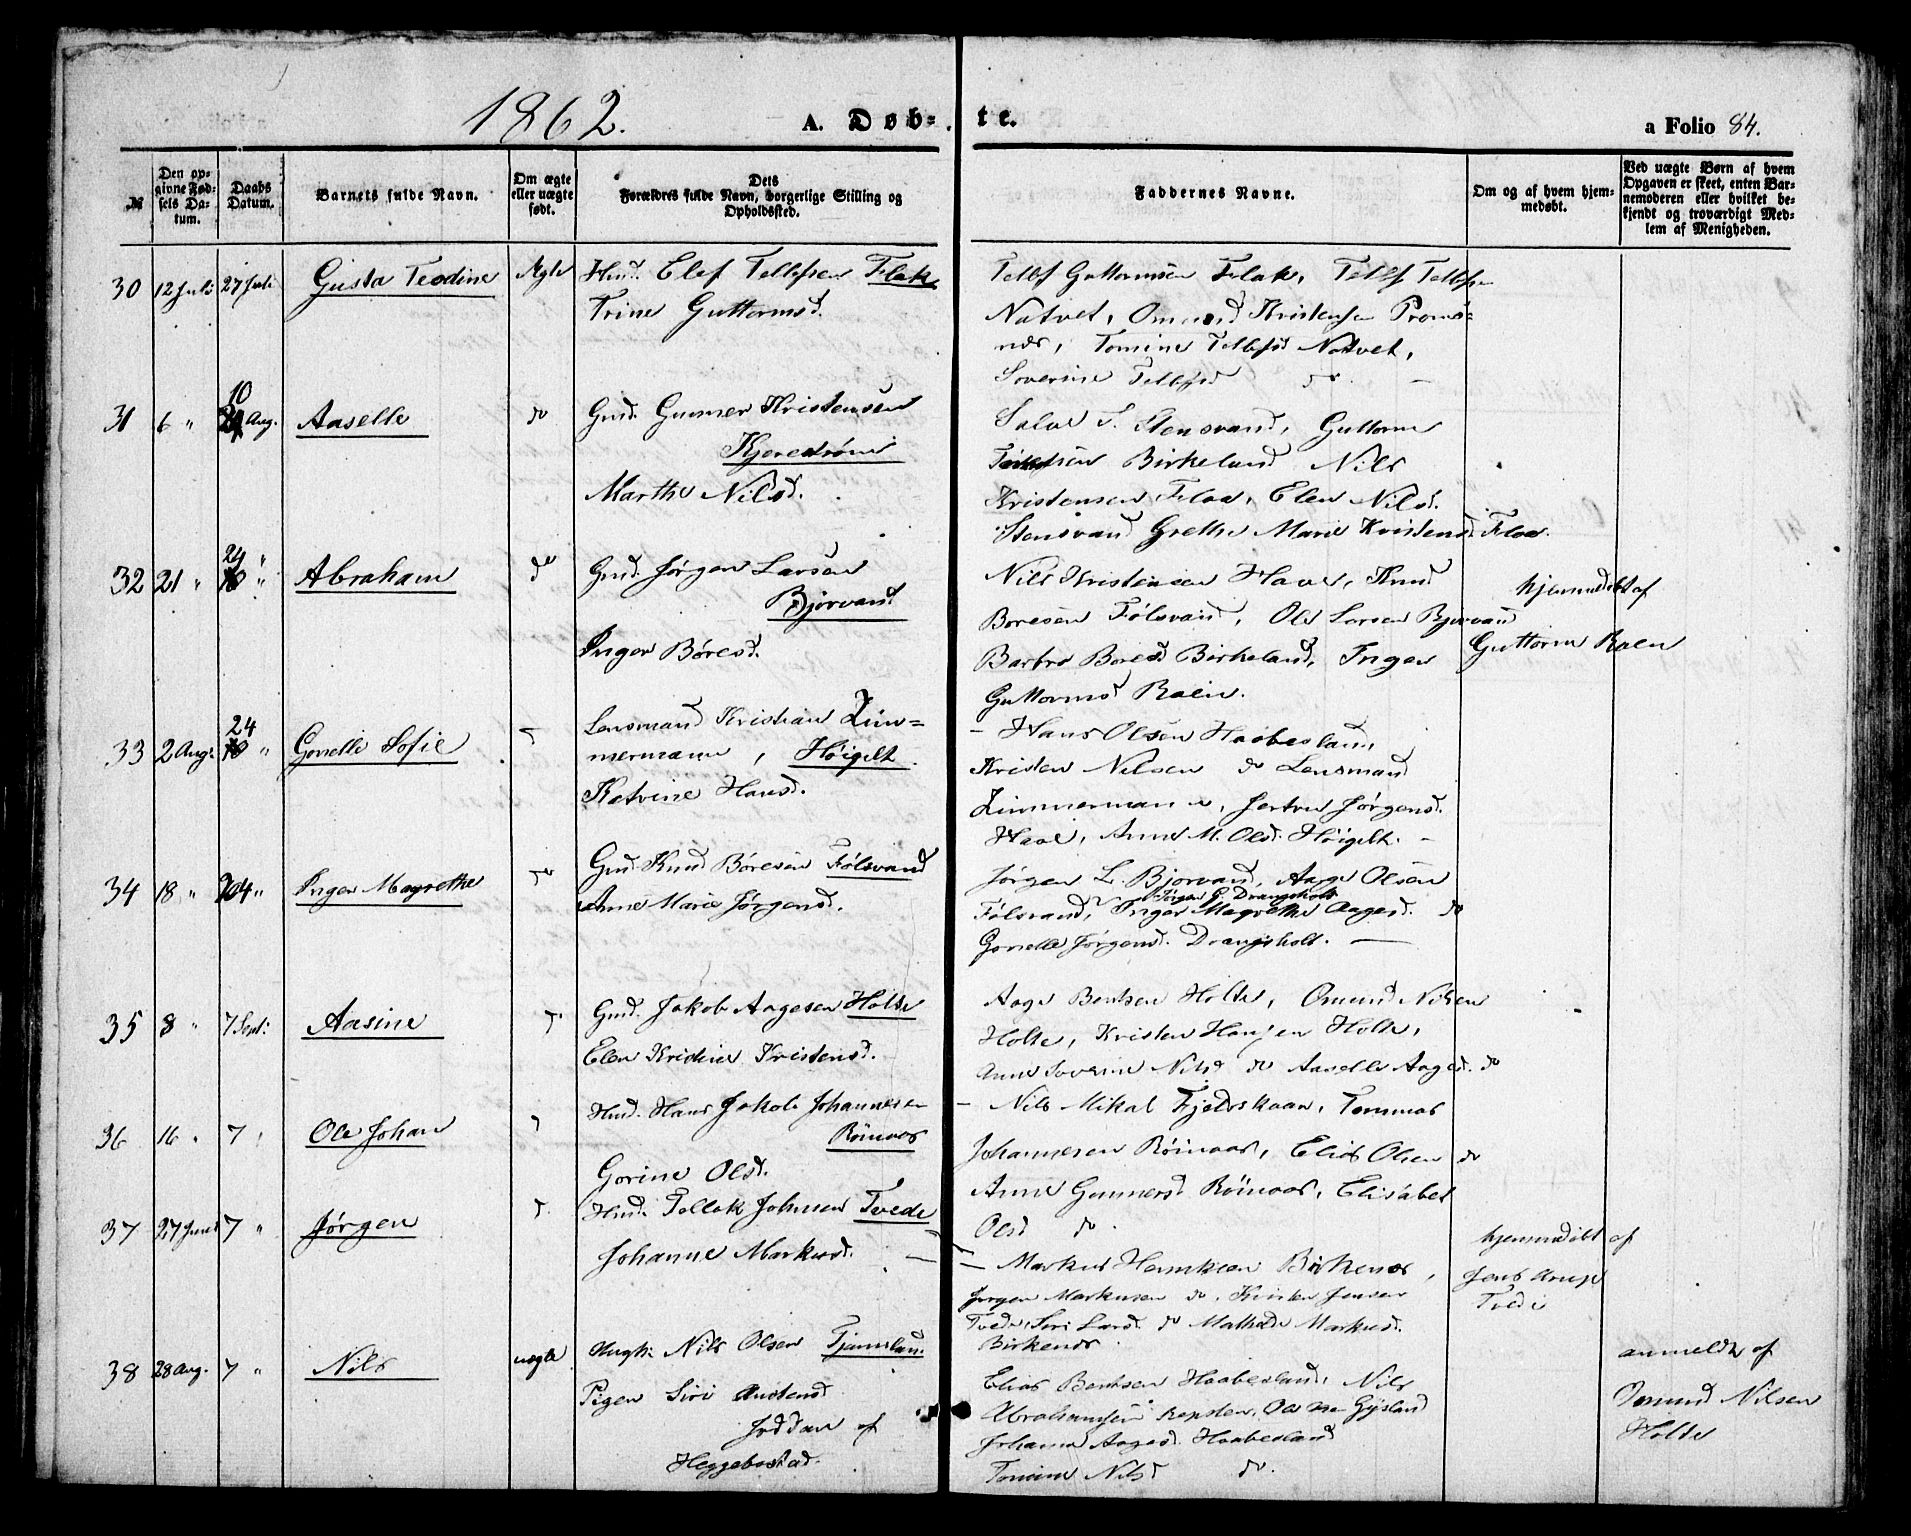 1862.
A. Døb-
te.
a Folio 84.
№
Den op-
givne Fød-
sels Da-
tum.
Daabs
Datum.
Barnets fulde Navn.
Om ægte
eller uægte
født.
Dets
Forældres fulde Navn, borgerlige Stilling og
Opholdssted.
Faddernes Navne.
Om og af hvem hjem-
medøbt.
Ved uægte Børn af hvem
Opgaven er skeet, enten Bar-
nemoderen eller hvilket be-
kjendt og troværdigt Med-
lem af Menigheden.
30 12 Juli 27 Juli Gusta Teodine Ægte
Hmd. Elef Tellefsen Flak
Trine Guttormsd.
Tellf Guttormsen Flak, Tellf Tellfsn
Natvet, Omund Kristensen
Tomine Tellfsd Natvet,
Soverine Tellfsd do. —
31 6 " 10 Aug. Aaselle do
Gmd. Gunner Kristensen
Marthe Nilsd.
Salve S. Stensvand, Guttorm
Birkeland Nils
Kristensen Floa, Elen Nilsd.
Stensvand Grethe Marie Kristensd. Floa.
32 21 " 24 " Abraham do
Gmd. Jørgen Larsen
Bjorvand
Inger Børesd.
Nils Kristensen Haave, Knud
Boresen Følsvand, Ole Larsen Bjorvand
Barbro Boresd Birkeland, Inger
Guttormsd Roen.
hjemmedøbt af
Guttorm Roen
33 2 Aug. 24 " Gonelle Sofie
Lensmand Kristian Zim-
mermann, Høigelt.
Katrine Hansd.
— Hans Olsen Haabesland,
Kristen Nilsen do Lensmand
Zimmermann, Jertru Jørgensd.
Haae, Anne M. Olsd. Høigelt. —
34 18 " 24 " Inger Magrethe do
Gmd. Knud Børesen Følsvand
Anne Marie Jørgensd.
Jørgen L. Bjorvand, Aage Olsen
Jørgen G. Drangsholt
Følsvand, Inger Magrethe Aagesd. do
Gonelle Jørgensd. Drangsholt. —
35 8 " 7 Sept: Aasine
Gmd. Jakob Aagesen Holte
Elen Kristine Kristensd.
Aage Bentsen Holte, Omund Nilsen
Holte, Kristen Hansen Holte,
Anne Soverine Nilsd do Aaselle Aagesd. do
36 16 " 7 " Ole Johan
Hmd. Hans Jakob Johannesen
Røinaas
Gorine Olsd.
— Nils Mikal Fjeldskaar, Tommas
Johannesen Røinaas, Elias Olsen do
Anne Gunnersd. Røinaas, Elisabet
Olsd do.
37 27 Juni 7 " Jørgen
Hmd. Tellak Johnsen Tvede
Johanne Markusd. —
— Markus Henriksen Birkenes,
Jørgen Markusen do, Kristen Jensen
Tvede, Siri Larsd. do Mathilde Markusd.
Birkenes.
hjemmedøbt af
Jens
Tvede
38 28 Aug. 7 " Nils uægte
Ungk: Nils Olsen
Pigen Siri
af
Heggebostad.
Elias Bentsen Haabesland, Nils
Abrahamsen Repsten, Ole
Johanne Aagesd. Haabesland
Tomine Nilsd do.
anmeldt af
Omund Nilsen
Holte